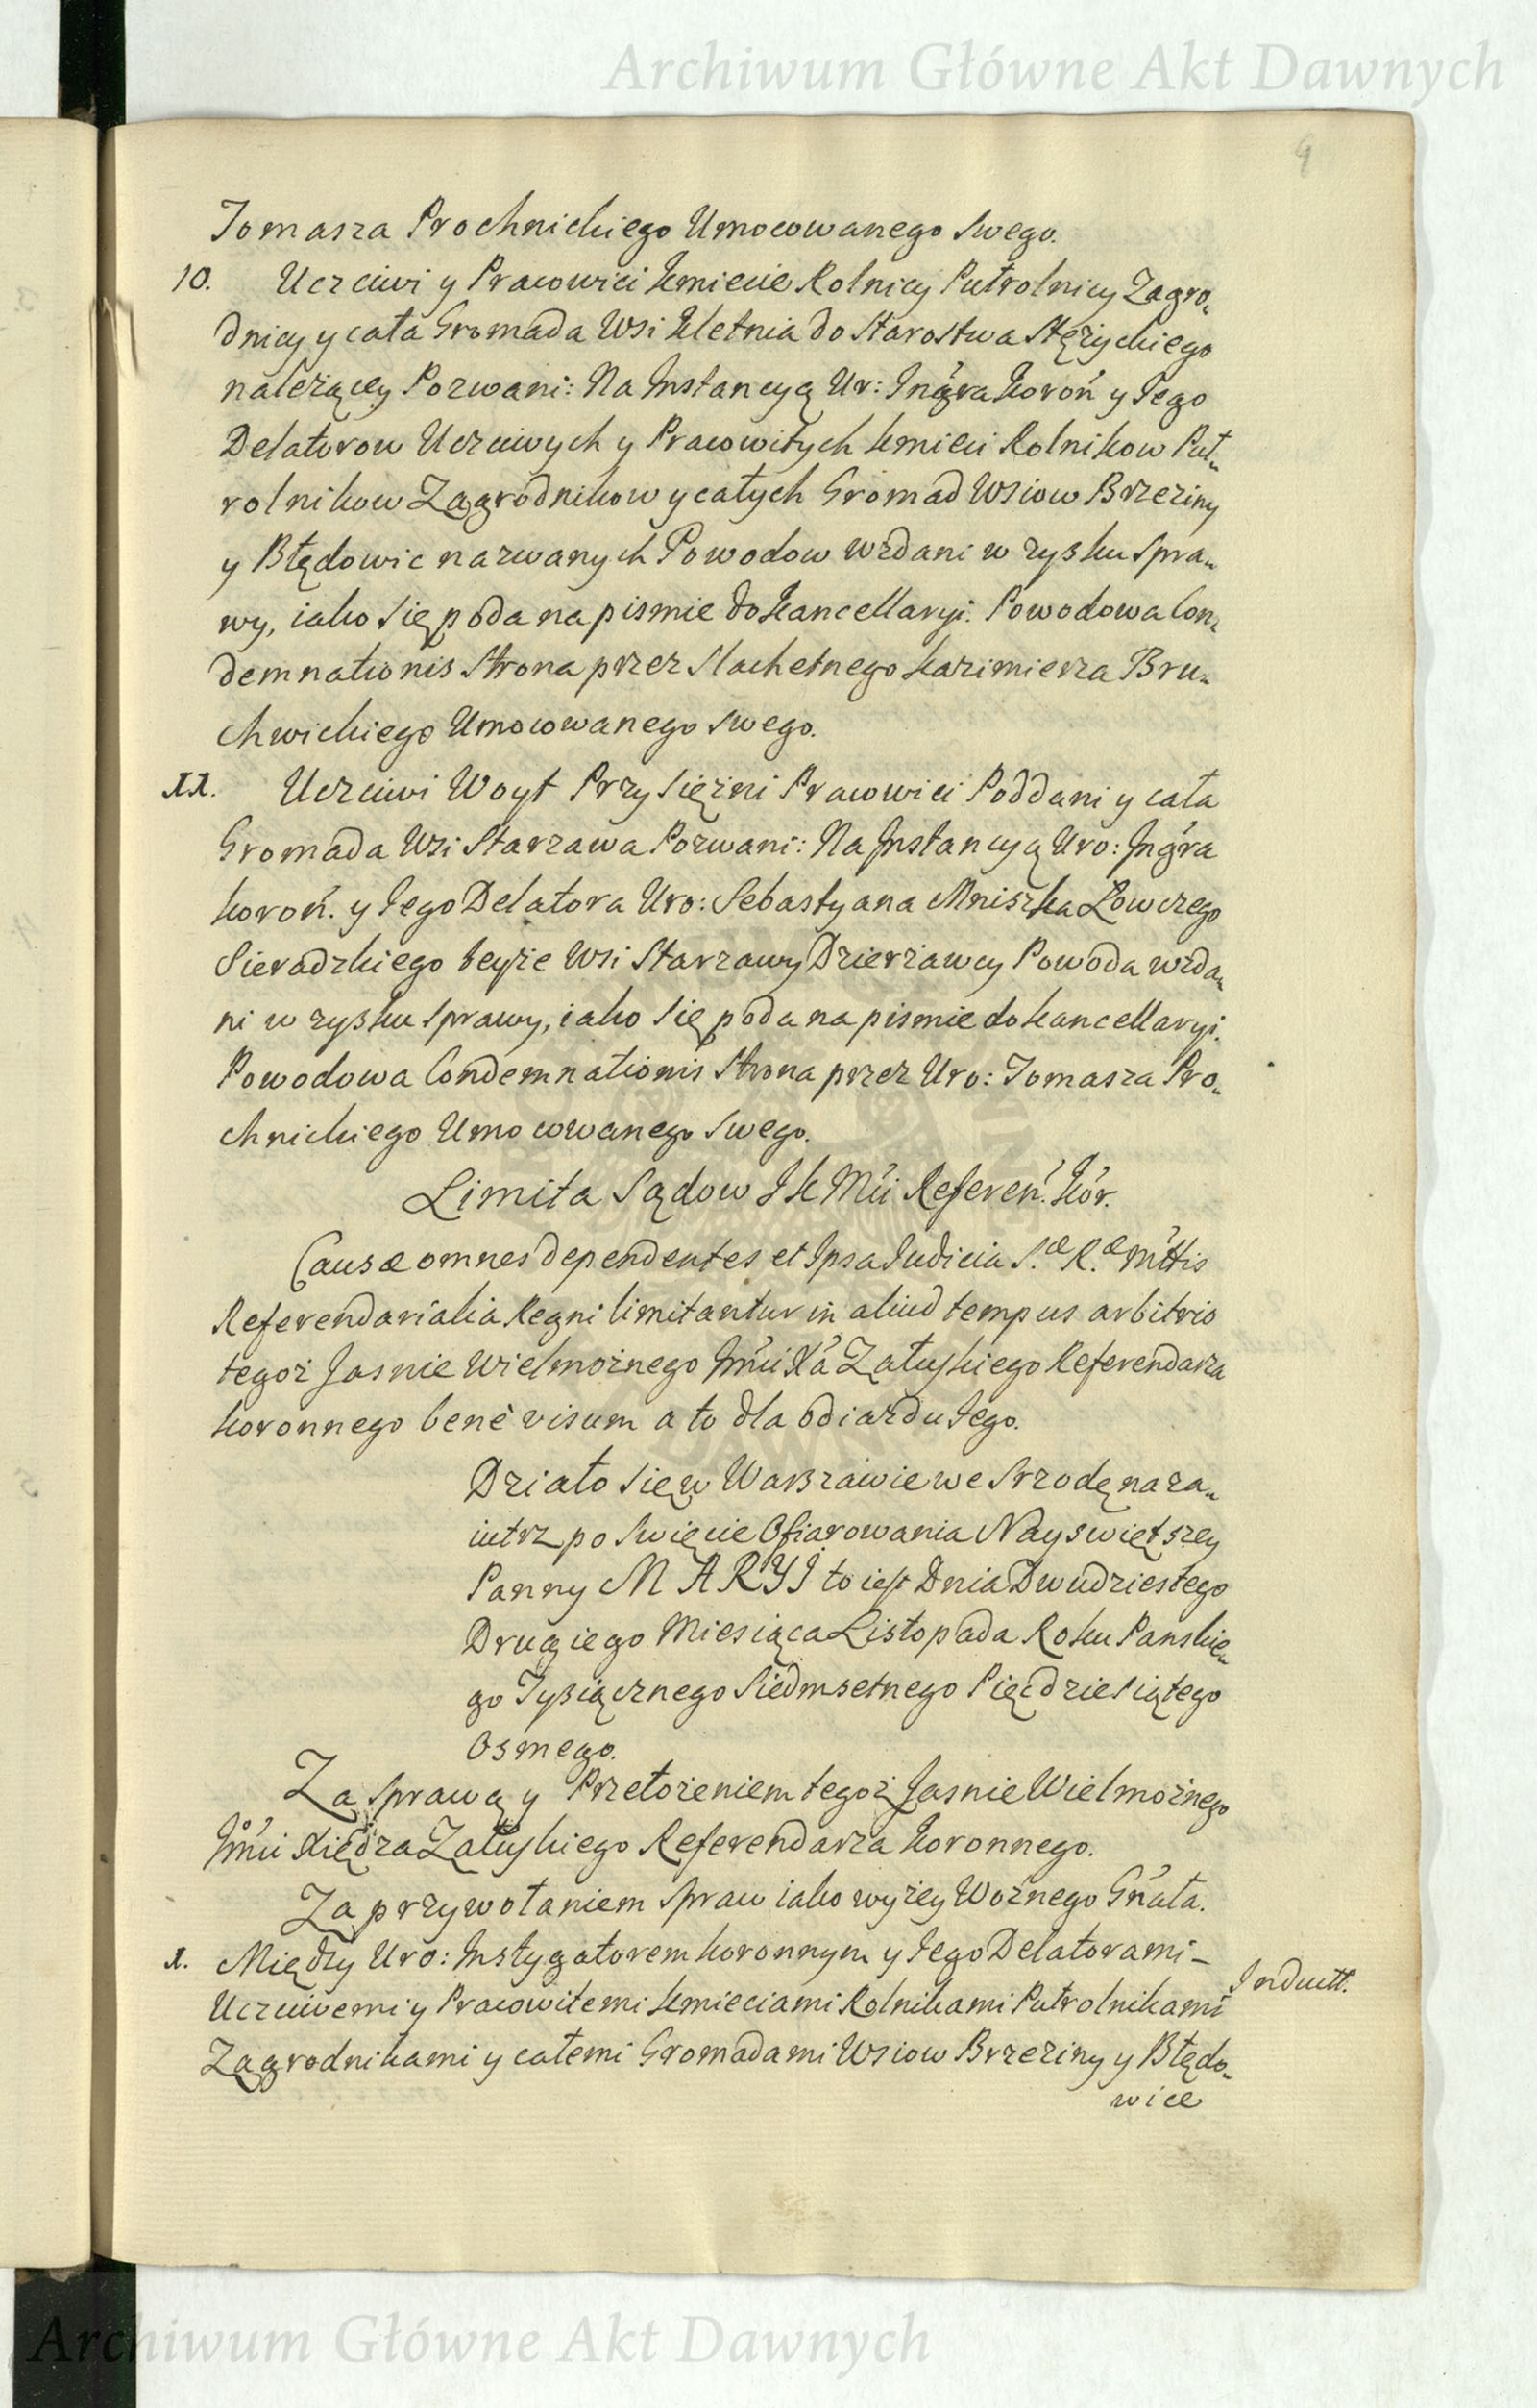 Archiwum Główne Akt Dawnych
9
Tomasza Prochnickiego Umocowanego swego.
10. Uczciwi y Pracowici Kmiecie Rolnicy Pułrolnicy Zagro-
dnicy y cała Gromada Wsi Kletnia do Starostwa Stężyckiego
należący Pozwani: Na Instancyą Ur: Ingra Koroń y Jego
Delatorow Uczciwych y Pracowitych Kmieci Rolnikow Puł-
rolnikow Zagrodnikow y całych Gromad Wsiow Brzeziny
y Błędowic nazwanych Powodow wzdani w zysku spra-
wy, iako się poda na pismie do Kancellaryi. Powodowa Con-
demnationis Strona przez Slachetnego Kazimierza Bru-
chwickiego Umocowanego swego.
11. Uczciwi Woyt Przysiężni Pracowici Poddani y cała
Gromada Wsi Starzawa Pozwani: Na Instancyą Uro: Ingra
Koroń. y Jego Delatora Uro: Sebastyana Mniszka Łowczego
Sieradzkiego teyże Wsi Starzawy Dzierżawcy Powoda wzda-
ni w zysku sprawy, iako się poda na pismie do Kancellaryi.
Powodowa Condemnationis Strona przez Uro: Tomasza Pro-
chnickiego Umocowanego swego.
Limita Sądow JK Mci Referen. Kor.
Causæ omnes dependentes et Ipsa Judicia S.æ R.æ Mttis
Referendarialia Regni limitantur in aliud tempus arbitrio
tegoż Jasnie Wielmożnego Jmci Xa Załuskiego Referendarza
Koronnego benè visum a to dla odiazdu Jego.
Działo się w Warszawie we Srzodę naza-
iutrz po Swięcie Ofiarowania Nayswiętszey
Panny MARYI to iest Dnia Dwudziestego
Drugiego Miesiąca Listopada Roku Panskie-
go Tysiącznego Siedmsetnego Pięcdziesiątego
Osmego.
Za sprawą y Przełożeniem tegoż Jasnie Wielmożnego
Jmci Xiędza Załuskiego Referendarza Koronnego.
Za przywołaniem spraw iako wyżey Woźnego Gnała.
1. Między Uro: Instygatorem Koronnym y Jego Delatorami -
Uczciwemi y Pracowitemi Kmieciami Rolnikami Pułrolnikami
Indultt.
Zagrodnikami y całemi Gromadami Wsiow Brzeziny y Błędo-
wice
Archiwum Główne Akt Dawnych